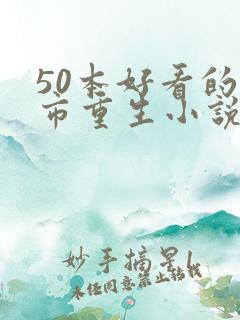 50本好看的
市重生小说
妙手摘星l
未经同意禁止转载